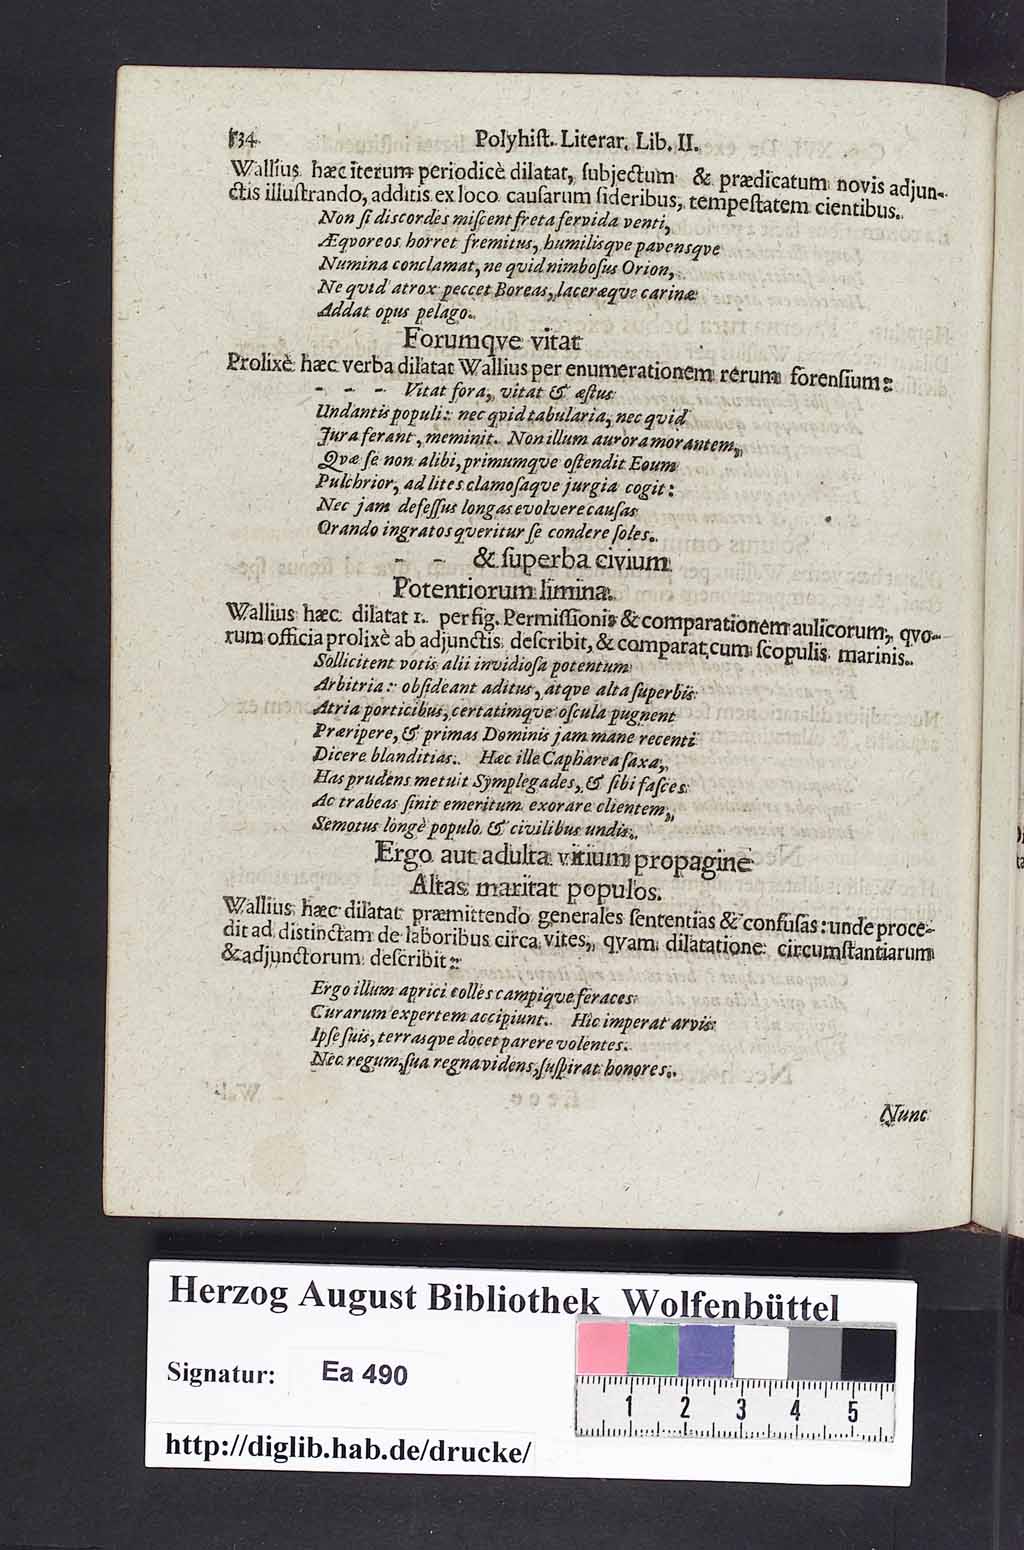 534 Polyhiſt. Literar. Lib. II.
Wallius hæc iterum periodicè dilatat, ſubjectum & prædicatum novis adjun-
ctis illuſtrando, additis ex loco cauſarum ſideribus, tempeſtatem cientibus.
Non ſi diſcordes miſcent freta fervida venti,
Æqvoreos horret fremitus, humilisqve pavensqve
Numina conclamat, ne qvid nimboſus Orion,
Ne qvid atrox peccet Boreas, laceræqve carinæ
Addat opus pelago.
Forumqve vitat
Prolixè hæc verba dilatat Wallius per enumerationem rerum forenſium:
- - - Vitat fora, vitat & æſtus
Undantis populi: nec qvid tabularia, nec qvid
Jura ferant, meminit. Non illum aurora morantem,
Qvæ ſe non alibi, primumqve oſtendit Eoum
Pulchrior, ad lites clamoſaqve jurgia cogit:
Nec jam defeſſus longas evolvere cauſas
Orando ingratos qveritur ſe condere ſoles.
- - & ſuperba civium
Potentiorum limina.
Wallius hæc dilatat 1. per fig. Permiſſionis & comparationem aulicorum, qvo-
rum officia prolixè ab adjunctis deſcribit, & comparat cum ſcopulis marinis.
Sollicitent votis alii invidioſa potentum
Arbitria: obſideant aditus, atqve alta ſuperbis
Atria porticibus, certatimqve oſcula pugnent
Præripere, & primas Dominis jam mane recenti
Dicere blanditias. Hæc ille Capharea ſaxa,
Has prudens metuit Symplegades, & ſibi faſces
Ac trabeas ſinit emeritum exorare clientem,
Semotus longè populo & civilibus undis.
Ergo aut adulta vitium propagine
Altas maritat populos.
Wallius hæc dilatat præmittendo generales ſententias & confuſas: unde proce-
dit ad diſtinctam de laboribus circa vites, qvam dilatatione circumſtantiarum
& adjunctorum deſcribit:
Ergo illum aprici colles campiqve feraces
Curarum expertem accipiunt. Hic imperat arvis
Ipſe ſuis, terrasqve docet parere volentes.
Nec regum, ſua regna videns, ſuſpirat honores.
Nunc
Herzog August Bibliothek Wolfenbüttel
Signatur: Ea 490
1 2 3 4 5
http://diglib.hab.de/drucke/